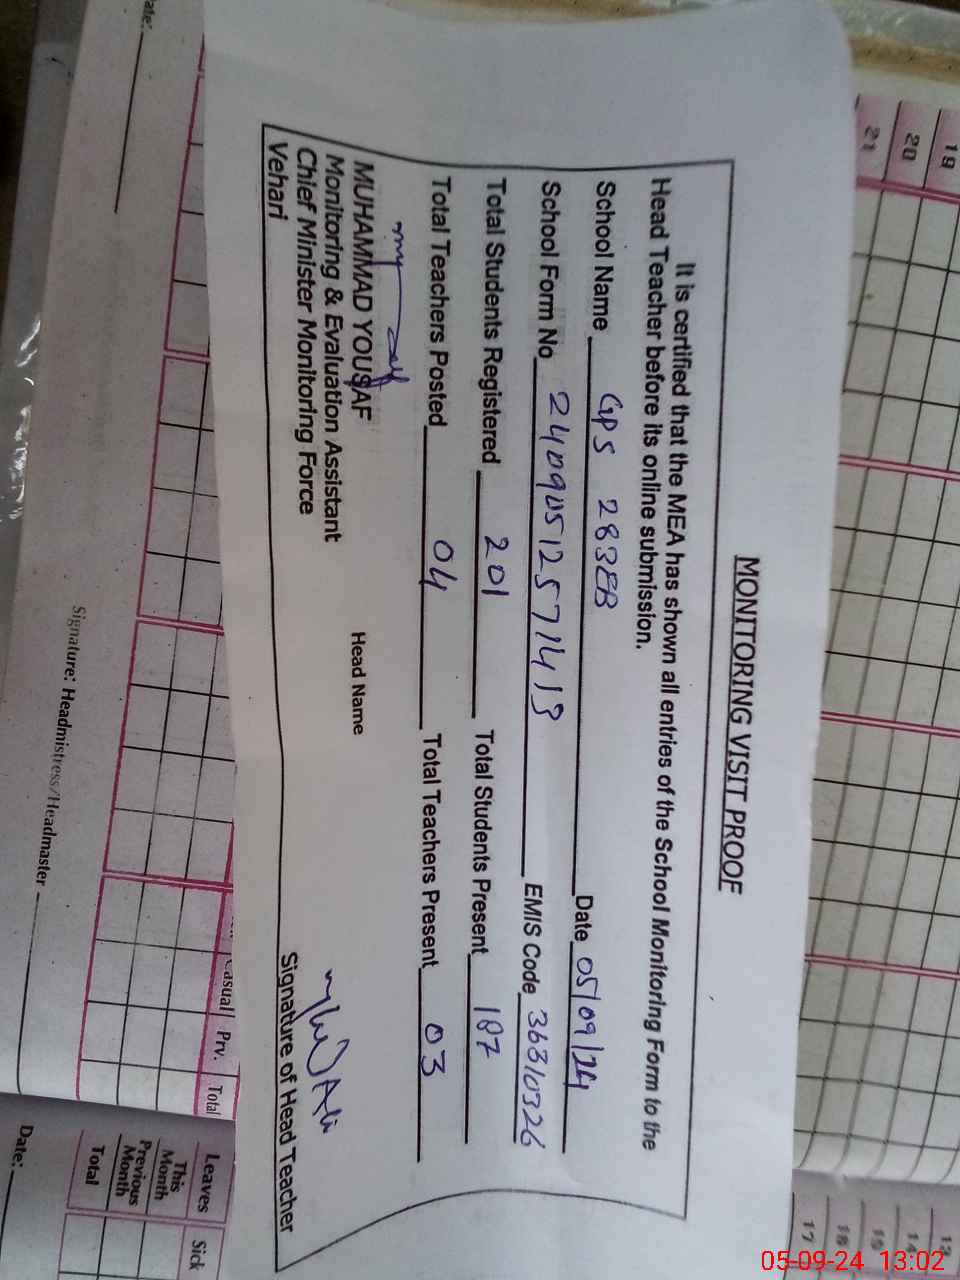 MONITORING VISIT PROOF
It is certified that the MEA has shown all entries of the School Monitoring Form to the
Head Teacher before its online submission.
School Name GPS 283EB Date 05/09/24
School Form No 24090512571413 EMIS Code 36310326
Total Students Registered 201 Total Students Present 187
Total Teachers Posted 04 Total Teachers Present 03
MUHAMMAD YOUSAF Head Name
Monitoring & Evaluation Assistant
Chief Minister Monitoring Force Signature of Head Teacher
Vehari
19
20
21
13
14
15
16
17
Casual Prv. Total
Leaves Sick
This Month
Previous Month
Total
Signature: Headmistress/Headmaster
Date:
05-09-24 13:02